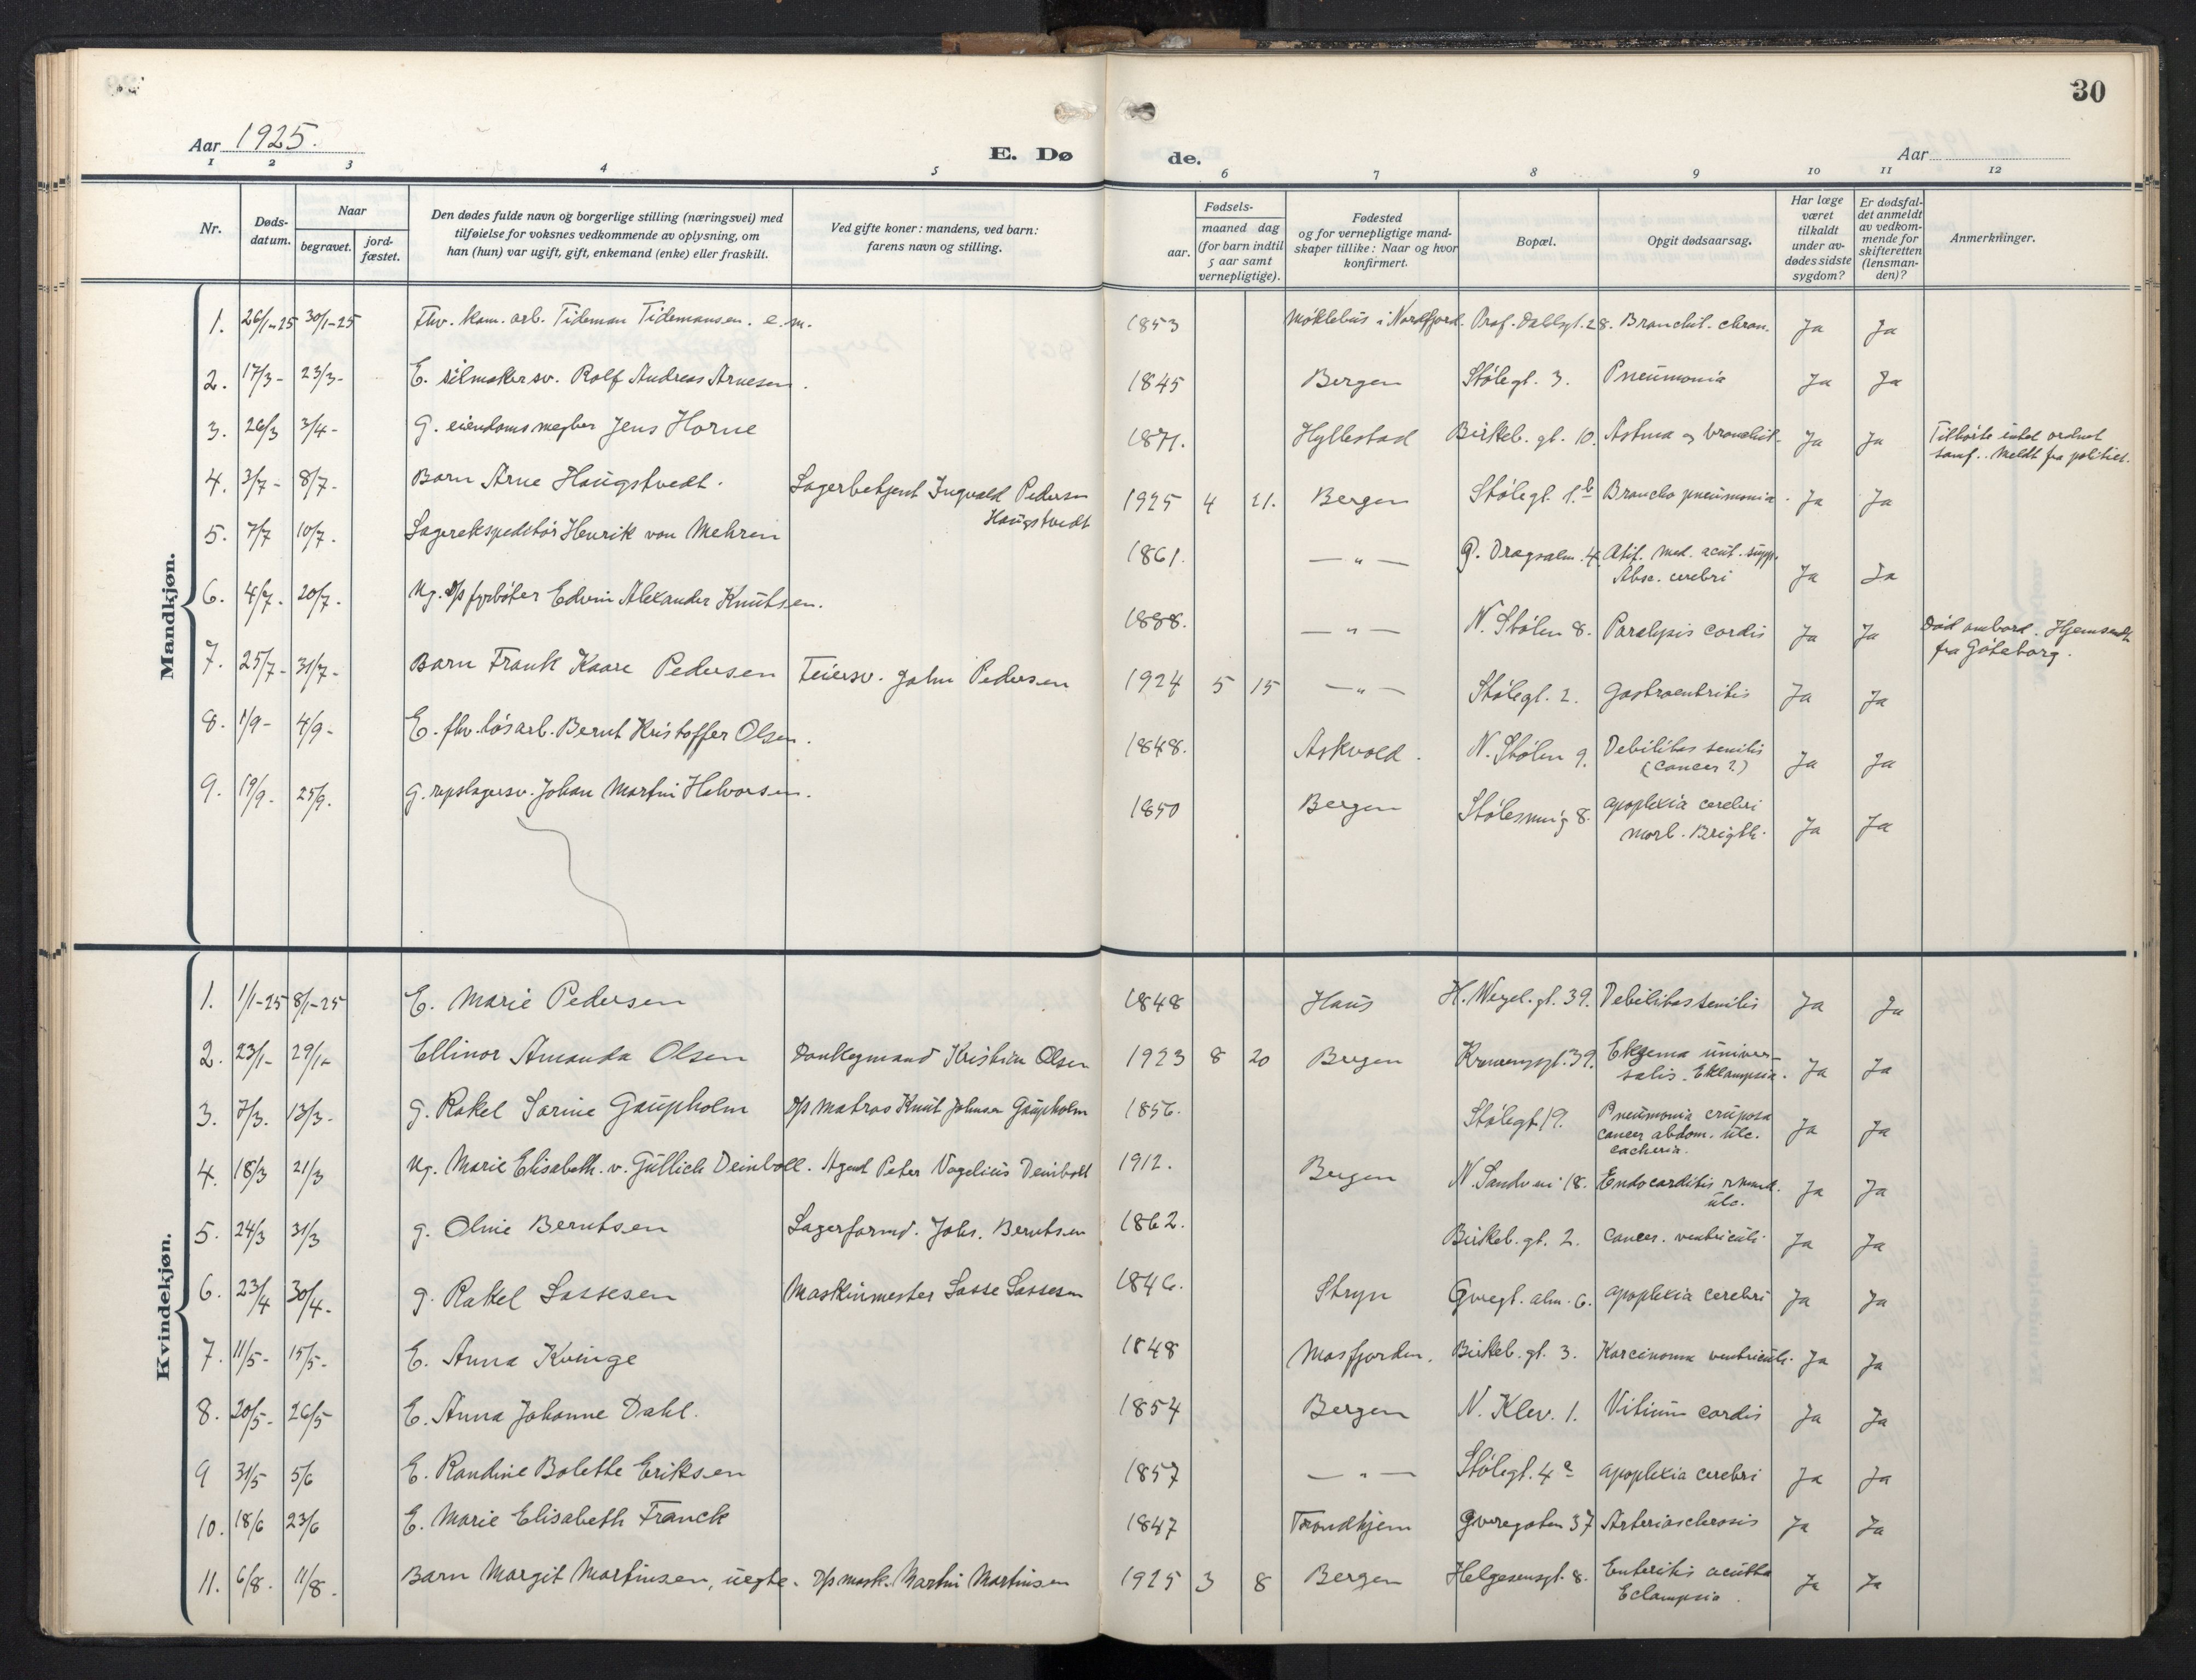 30
Aar 1925.
E. Dø
de.
Aar
1 2 3 4 5 6 7 8 9 10 11 12
Nr.
Døds-
datum.
Naar
begravet.
jord-
fæstet.
Den dødes fulde navn og borgerlige stilling (næringsvei) med
tilføielse for voksnes vedkommende av oplysning, om
han (hun) var ugift, gift, enkemand (enke) eller fraskilt.
Ved gifte koner: mandens, ved barn:
farens navn og stilling.
Fødsels-
aar.
maaned dag
(for barn indtil
5 aar samt
vernepligtige).
Fødested
og for vernepligtige mand-
skaper tillike: Naar og hvor
konfirmert.
Bopæl.
Opgit dødsaarsag.
Har læge
været
tilkaldt
under av-
dødes sidste
sygdom?
Er dødsfal-
det anmeldt
av vedkom-
mende for
skifteretten
(lensman-
den)?
Anmerkninger.
Mandkjøn.
1. 26/1-25 30/1-25 Fhv. kom. arb. Tideman Tidemansen. e.m. 1853 Møklebus i Nordfjord. Prof. Dahlsgt. 28. Bronchit. chron. Ja Ja
2. 17/3- 23/3- E. seilmakersv. Rolf Andreas Arnesen. 1845 Bergen Stølegt. 3. Pneumonia Ja Ja
3. 26/3 3/4- G. eiendomsmegler Jens Horne 1871. Hyllestad Birkeb. gt. 10. Astma og bronchit. Ja Ja Tilhørte intet ordnet
samf. Meldt fra politiet.
4. 3/7- 8/7- Barn Arne Haugstvedt. Lagerbetjent Ingvald Pedersen
Haugstvedt 1925 4 21. Bergen Stølegt. 1.b Broncho pneumonia. Ja Ja
5. 7/7 10/7. Lagerekspeditør Henrik von Mehren 1861. — " — P. Dragsalm. 4. Otit. med. acut. supp.
Absc. cerebri Ja Ja
6. 4/7. 20/7. Ug. D/s fyrbøter Edvin Alexander Knutsen. 1888. — " — N. Stølen 8. Paralysis cordis Ja Ja Død ombord. Hjemsendt
fra Gøteborg.
7. 25/7- 31/7- Barn Frank Kaare Pedersen Feiersv. John Pedersen 1924 5 15 — " — Stølegt. 2. Gastroentritis Ja Ja
8. 1/9- 4/9- E. fhv. løsarb. Bernt Kristoffer Olsen. 1848. Askvold. N. Stølen 9. Debilitas senilis
(cancer?) Ja Ja
9. 19/9. 25/9. G. repslagersv. Johan Martin Halvorsen. 1850 Bergen Stølesmug 8. apoplexia cerebri
morb. Brigth. Ja Ja
Kvindekjøn.
1. 1/1-25 8/1-25 E. Marie Pedersen 1848 Haus H. Wegel. gt. 39. Debilitas senilis Ja Ja
2. 23/1- 29/1- Ellinor Amanda Olsen Donkeymand Kristian Olsen 1923 8 20 Bergen 39. Ekzema univer-
salis. Eklampsia. Ja Ja
3. 7/3. 13/3- g. Rakel Sarine Gaupholm D/s Matros Knut Johnsen Gaupholm 1856. Stølegt. 19. Pneumonia cruposa
cancer abdom. ulc.
cacheria. Ja Ja
4. 18/3 21/3 Ug. Marie Elisabeth. v. Güllich Deinboll. Agent Peter Vogelius Deinboll 1912. Bergen N. Sandvei 18. Endocarditis rheum.
ulc. Ja Ja
5. 24/3 31/3 g. Oline Berntsen Lagerformd. Johs. Berntsen 1862. Birkeb. gt. 2. Cancer. ventriculi. Ja Ja
6. 23/4 30/4. g. Rakel Lassesen Maskinmester Lasse Lassesen 1846. Stryn alm. 6. apoplexia cerebri Ja Ja
7. 11/5- 15/5- E. Anna Kvinge 1848 Masfjorden. Birkeb. gt. 3. Karcinoma ventriculi. Ja Ja
8. 20/5- 26/5 E. Anna Johanne Dahl. 1854 Bergen N. Klev. 1. Vitium cordis Ja Ja
9 31/5 5/6 E. Randine Bolette Eriksen 1857 — " — Stølegt. 4a apoplexia cerebri Ja Ja
10. 18/6 23/6 E. Marie Elisabeth Franck 1847 Trondhjem 37 Arterioschrosis Ja Ja
11. 6/8. 11/8. Barn Margit Martinsen, uegte. D/s mask. Martin Martinsen 1925 3 8 Bergen Helgesensgt. 8. Enteritis acutta
Eclampsia. Ja Ja